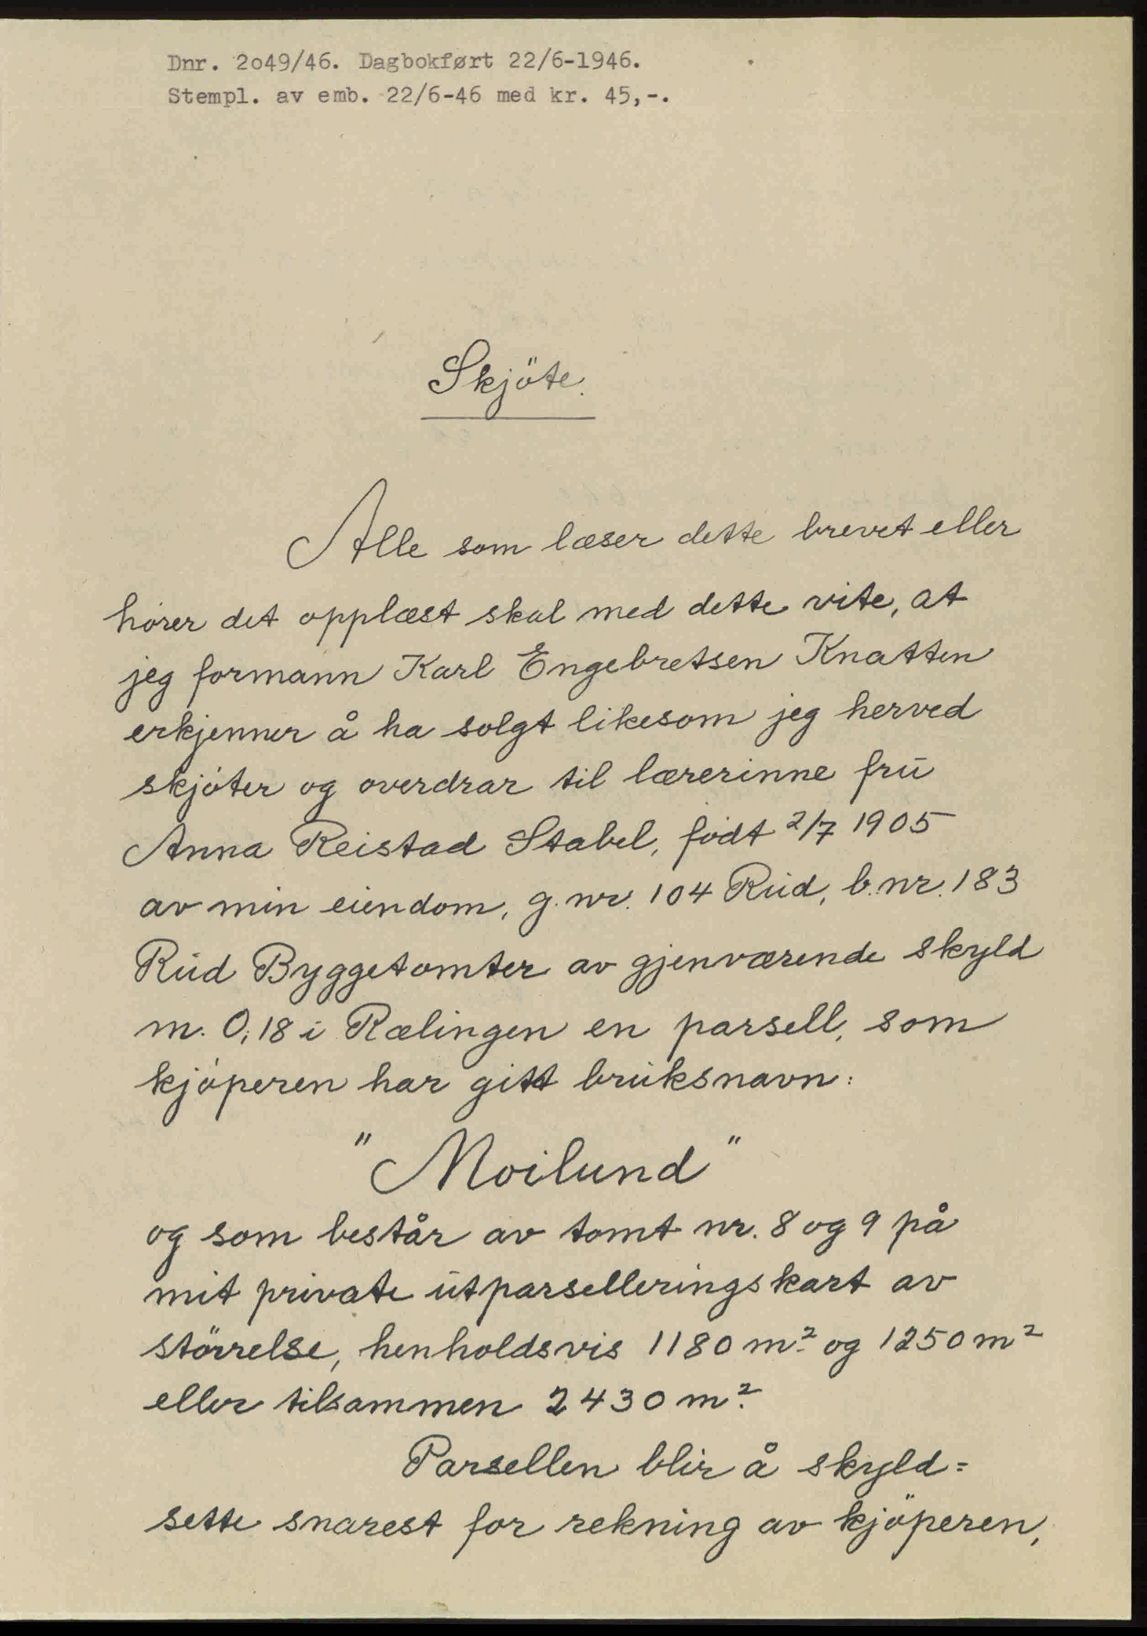 Dnr. 2o49/46. Dagbokført 22/6-1946.
Stempl. av emb. 22/6-46 med kr. 45,-.
Skjöte.
Alle som læser dette brevet eller
hörer det opplæst skal med dette vite, at
jeg formann Karl Engebretsen Knatten
erkjenner å ha solgt likesom jeg herved
skjöter og overdrar til lærerinne fru
Anna Reistad Stabel, födt 2/7 1905
av min eiendom, g.nr. 104 Rud, b.nr. 183
Rud Byggetomter av gjenværende skyld
m. 0,18 i Rælingen en parsell, som
kjöperen har gitt bruksnavn:
"Moilund"
og som består av tomt nr. 8 og 9 på
mit private utparselleringskart av
störrelse, henholdsvis 1180 m² og 1250 m²
eller tilsammen 2430 m².
Parsellen blir å skyld=
sette snarest for rekning av kjöperen,